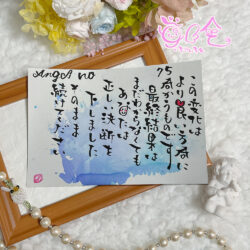 Angel no
この変化は
より良い方向に
75歳からのものです
最終結果は
まだわからなくても
あなたは
正しい決断を
下しました
そのまま
続けてください